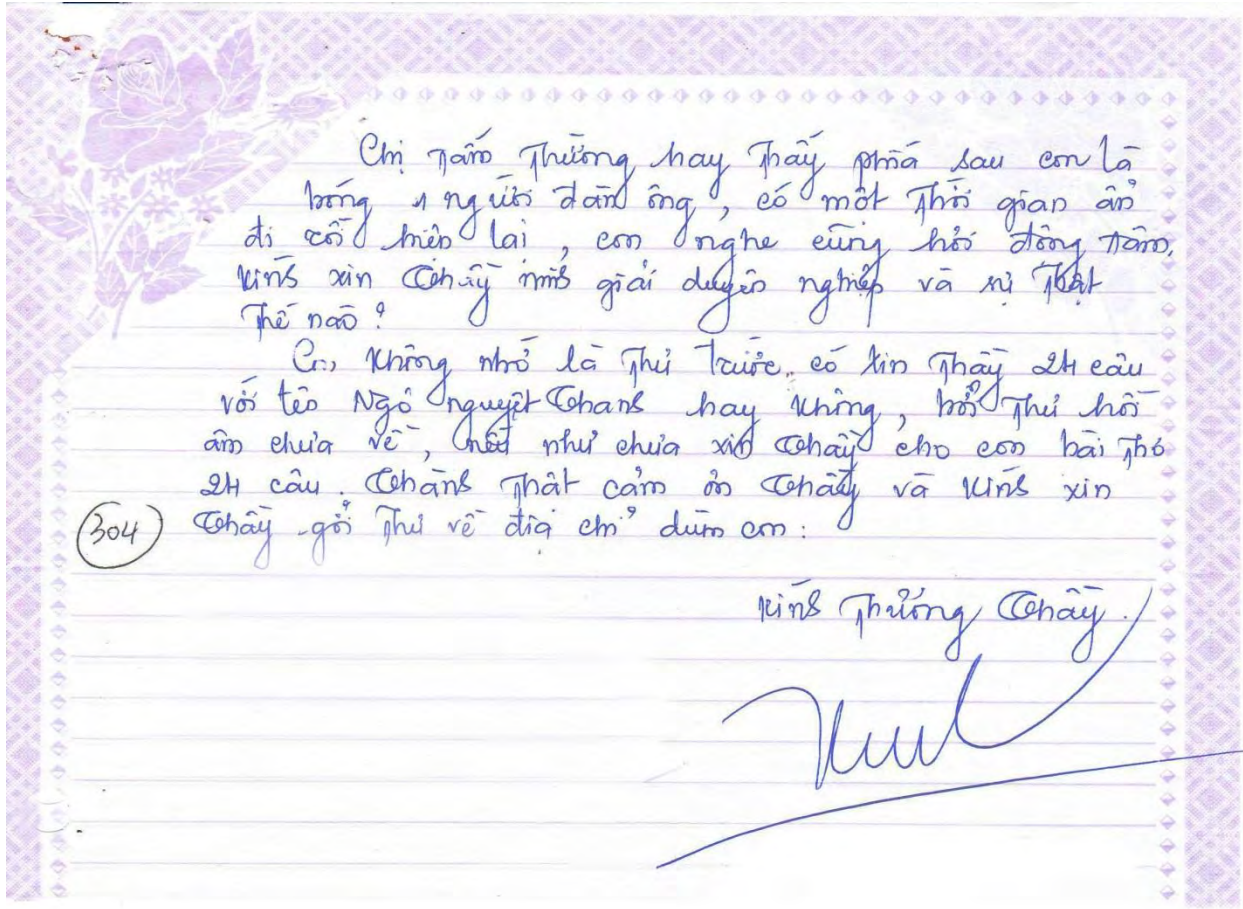 Chị Tám Thường hay Thấy phiá sau con là
bóng 1 người đàn ông, có một Thời gian ẩn
đi rồi hiện lại, con nghe cũng hơi động Tâm.
Kính xin Thầy minh giải duyên nghiệp và sự Thật
Thế nào?
Con không nhớ là Thư Trước có xin Thầy 24 câu
với tên Ngô nguyệt Thanh hay không, bởi Thư hồi
âm chưa về, nếu như chưa xin Thầy cho con bài Thơ
24 câu. Thành Thật cảm ơn Thầy và Kính xin
(304) Thầy gởi Thư về điạ chỉ dùm con:
Kính Thương Thầy.